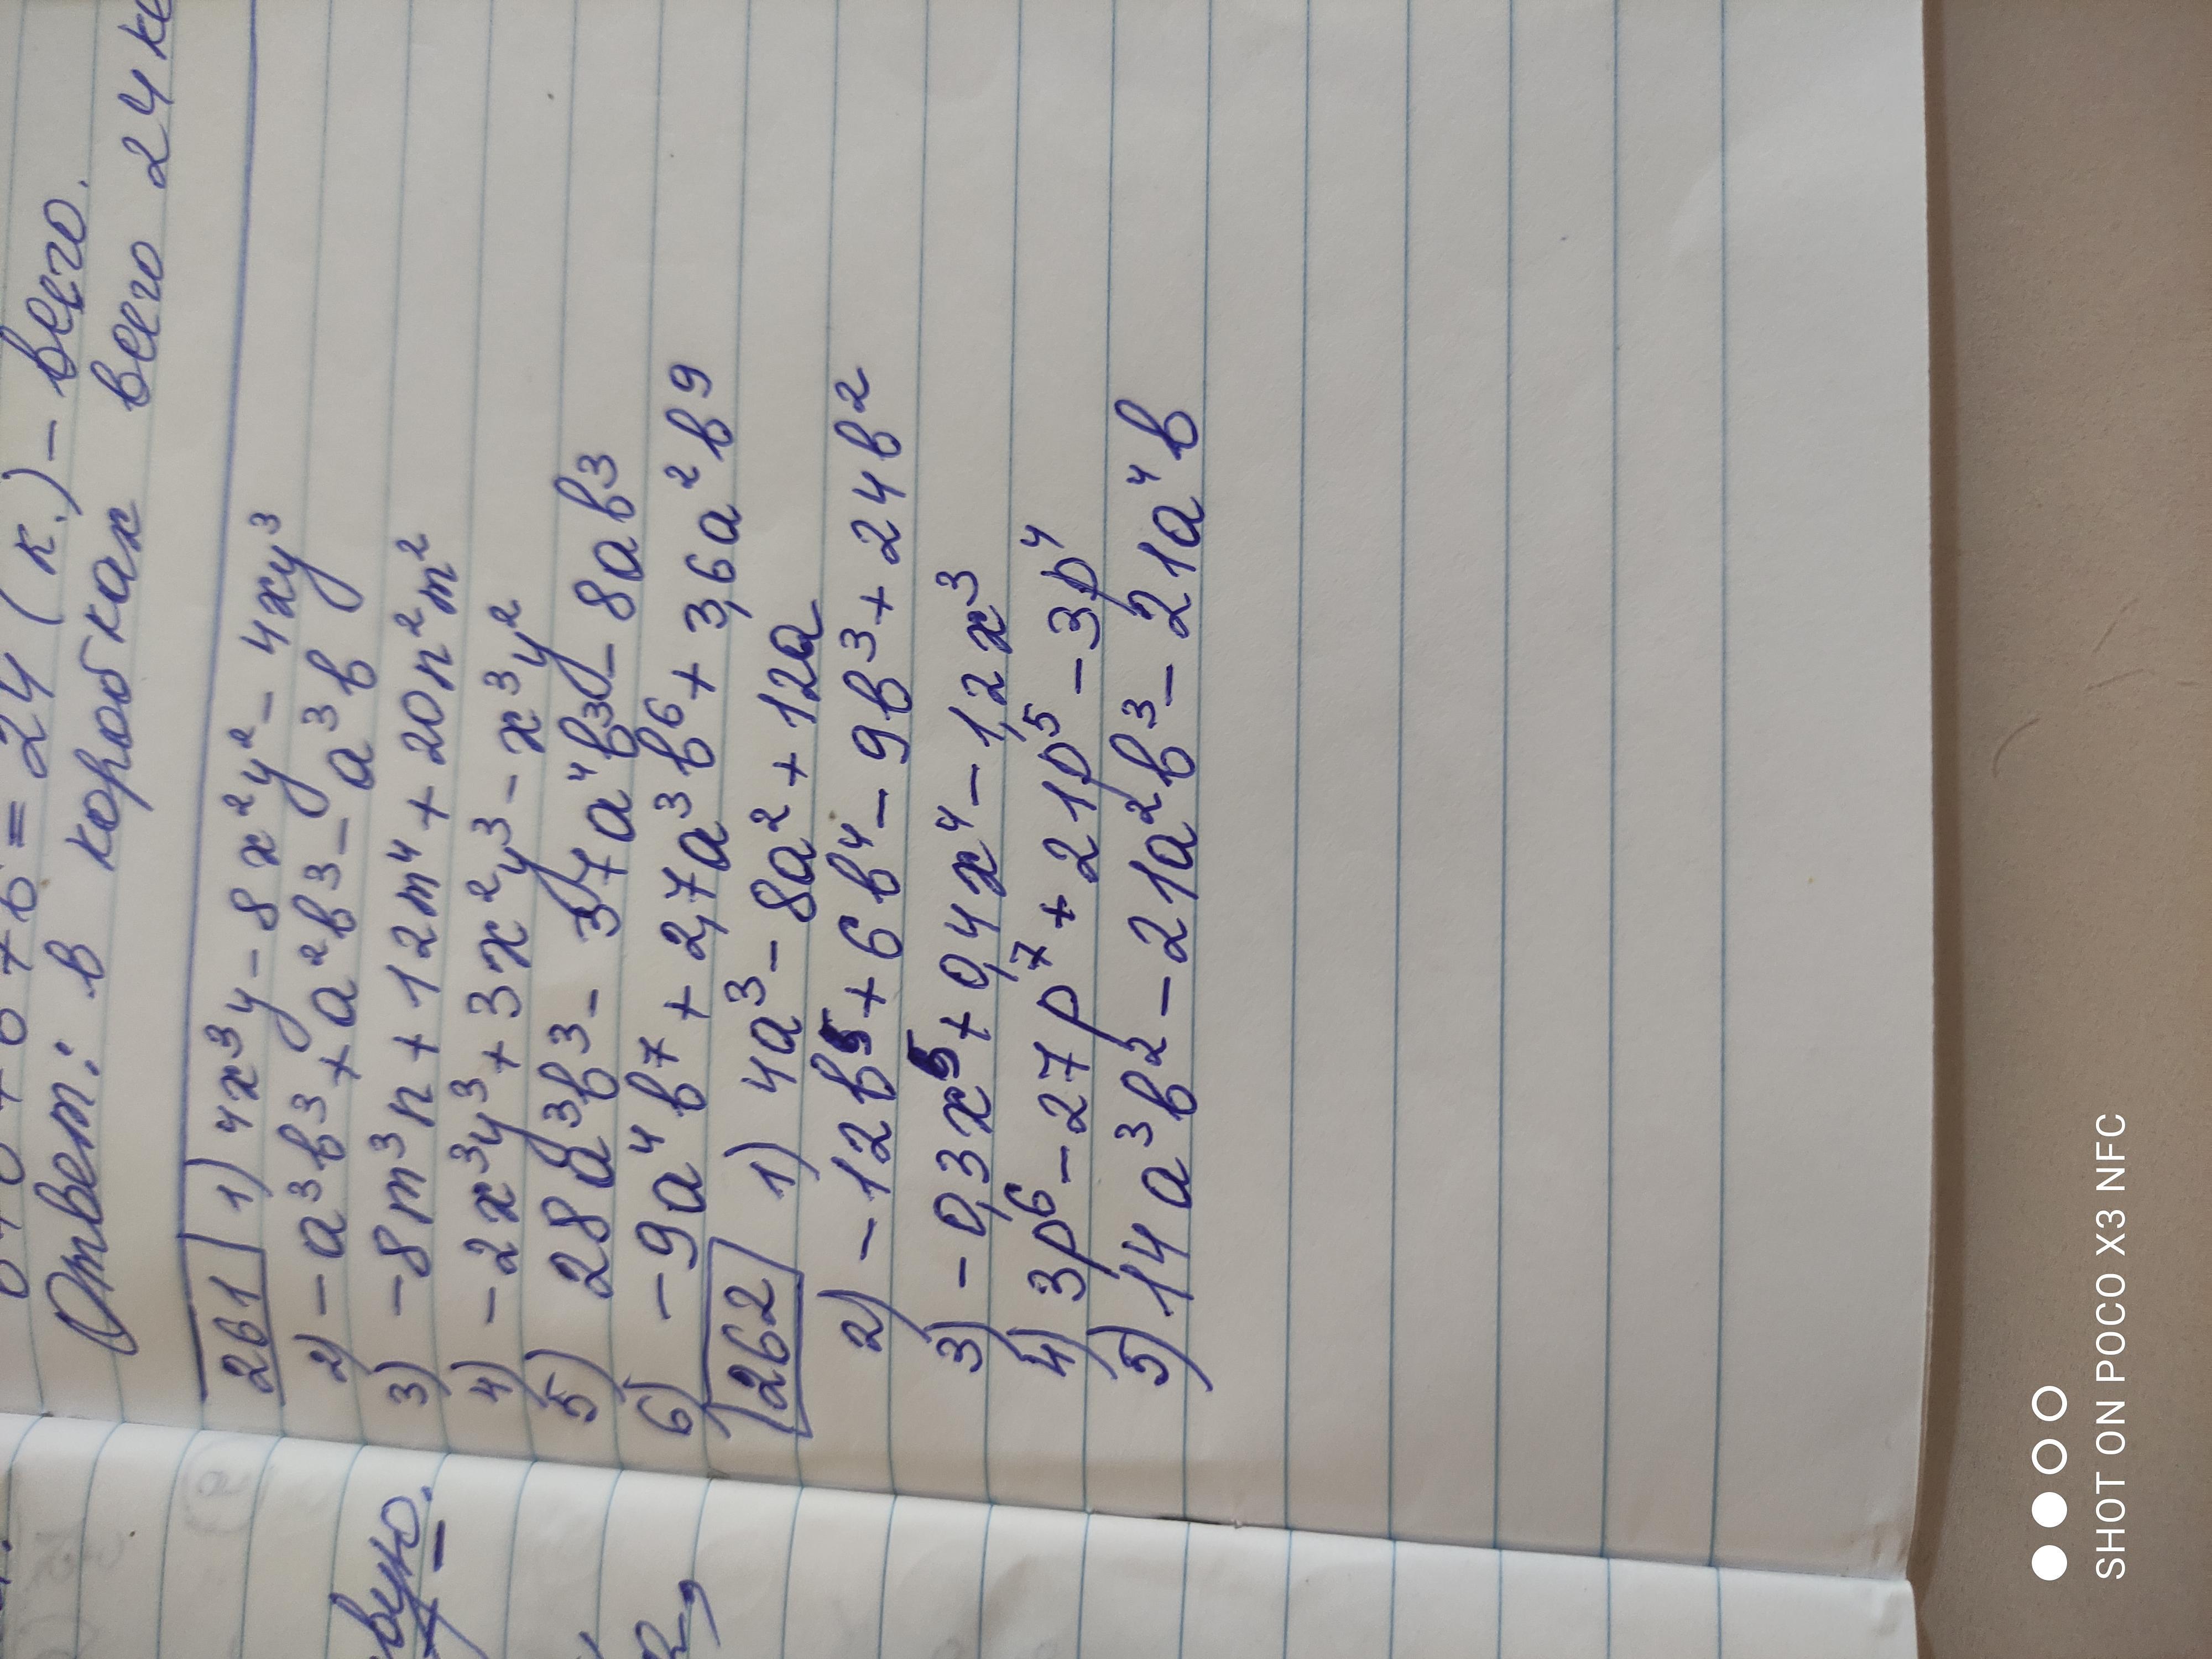 = 24 (к.) – всего.
Ответ: в коробках всего 24
261 1) 4x³y – 8x²y² – 4xy³
2) – a³b³ + a²b³ – a³b
3) –8m³n + 12m⁴ + 20n²m²
4) –2x³y³ + 3x²y³ – x³y²
5) 28a³b³ – 37a⁴b³ – 8ab³
6) –9a⁴b⁷ + 2,7a³b⁶ + 3,6a²b⁹
262 1) 4a³ – 8a² + 12a
2) –12b⁵ + 6b⁴ – 9b³ + 24b²
3) –0,3x⁵ + 0,4x⁴ – 1,2x³
4) 3p⁶ – 27p⁷ + 21p⁵ – 3p⁴
5) 14a³b² – 21a²b³ – 21a⁴b
SHOT ON POCO X3 NFC